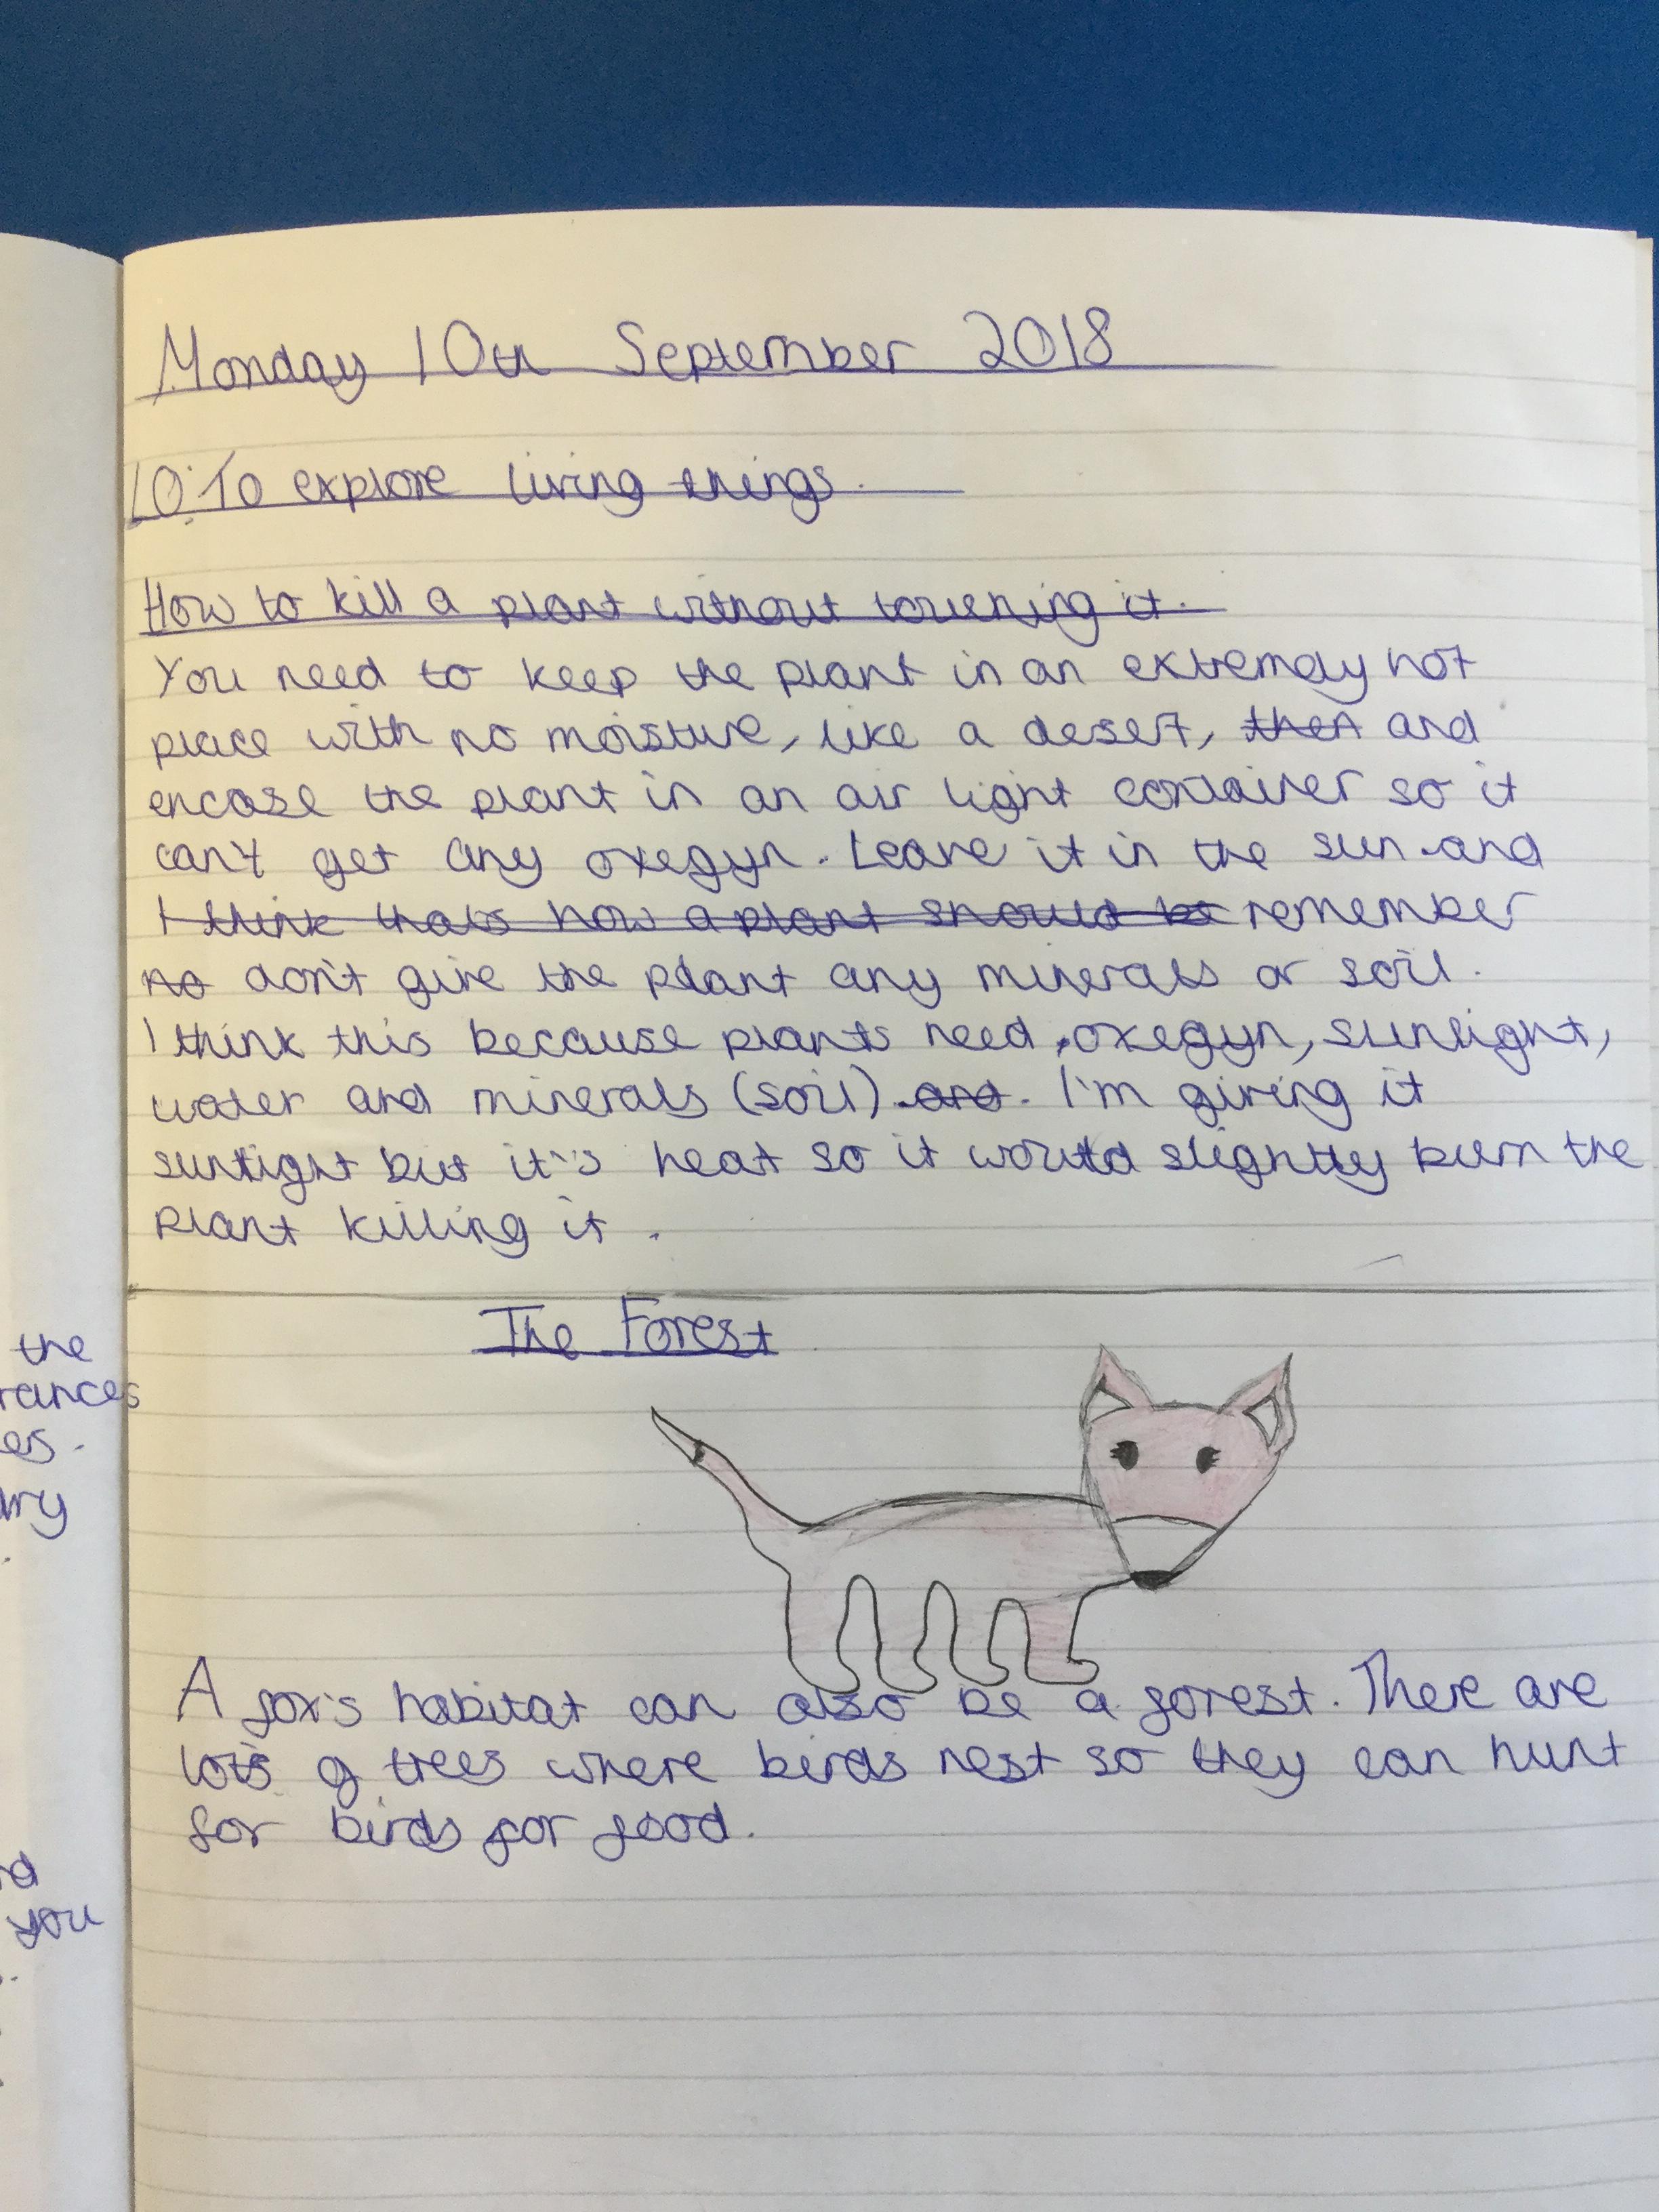 Monday 10th September 2018
LO: To explore living things.
How to kill a plant without touching it.
You need to keep the plant in an extremely hot
place with no moisture, like a desert, then and
encase the plant in an air tight container so it
can't get any oxegyn. Leave it in the sun and
I think thats how a plant should be remember
no don't give the plant any minerals or soil.
I think this because plants need, oxegyn, sunlight,
water and minerals (soil) and. I'm giving it
sunlight but it's heat so it would slightly burn the
plant killing it.
The Forest
A fox's habitat can also be a forest. There are
lots of trees where birds nest so they can hunt
for birds for food.
the
rances
es.
ary
you